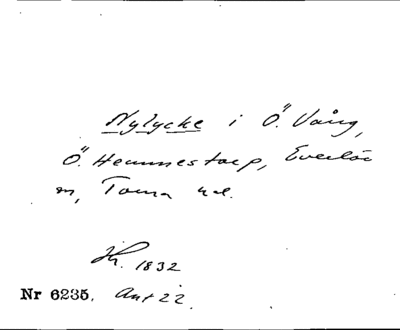 Nylycke i Ö. Vång,
Ö. Hemmestorp, Everlöv
sn, Torna hd.
1832
Nr 6235. Ant 22.